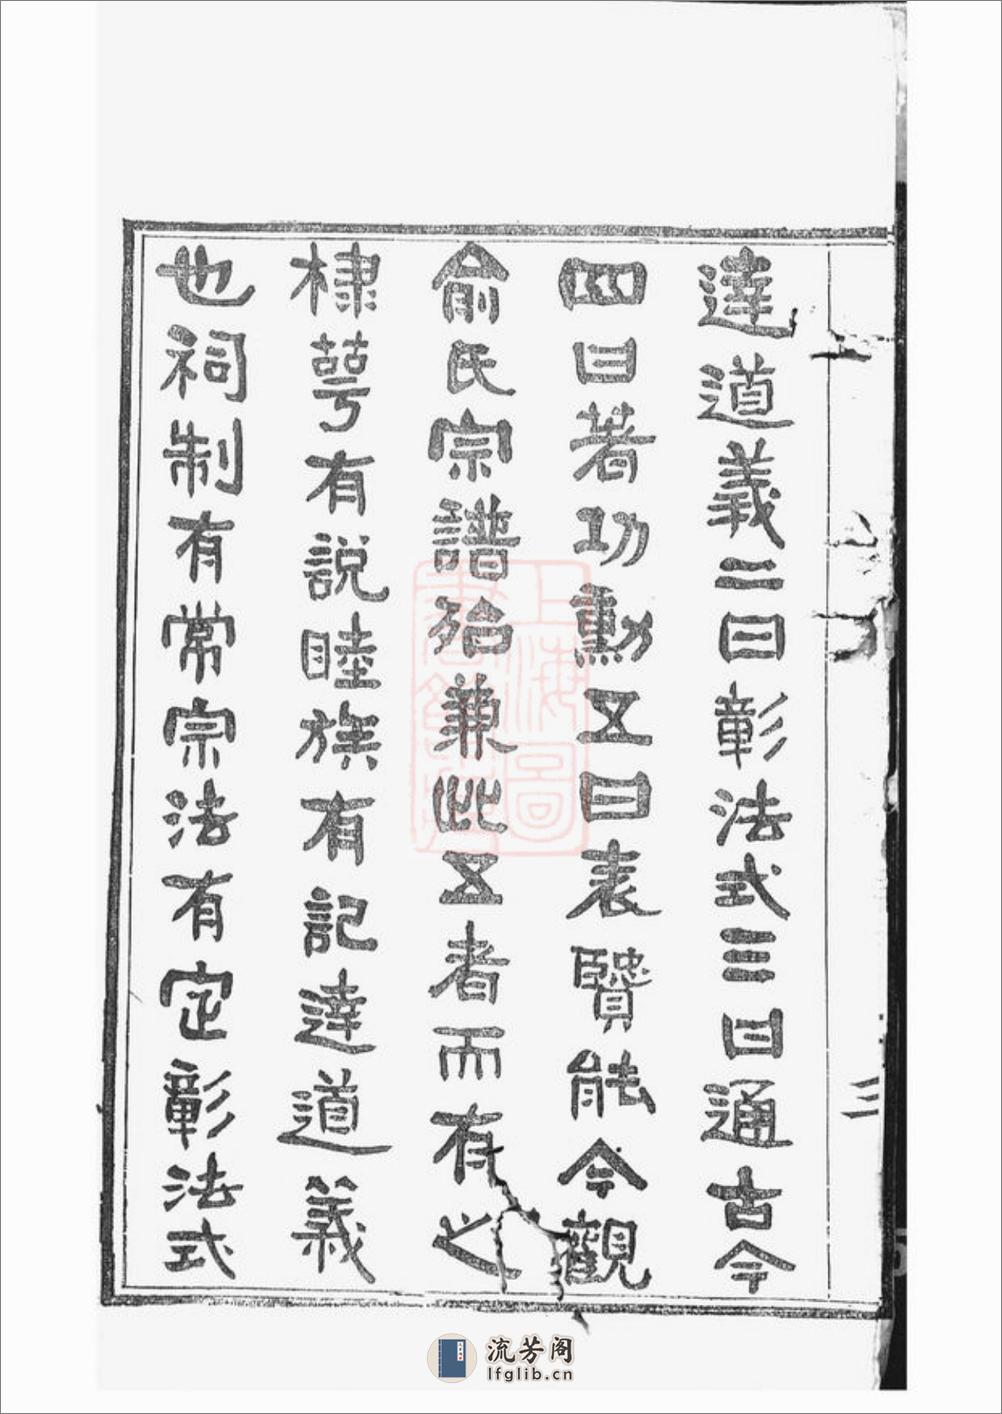 達道義二曰彰法式三曰通古今
四曰著功勳五曰表賢能今觀
俞氏宗譜殆兼此五者而有之
棣萼有說睦族有記達道義
也祠制有常宗法有定彰法式
三
上海圖書館藏
流芳阁
lfglib.cn